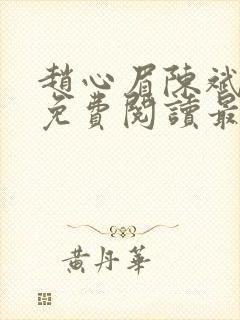 趙心眉陳斌
免費閱讀最
黃丹華